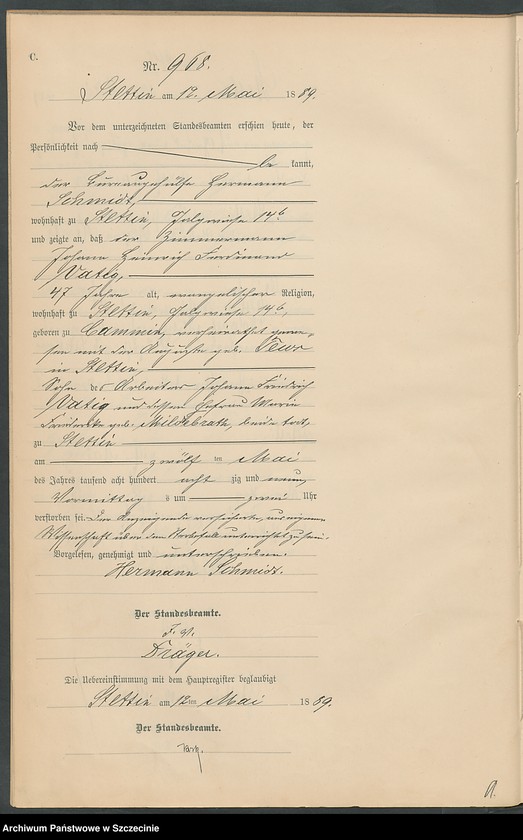 C.
Nr. 968.
Stettin am 12. Mai 1889.
Vor dem unterzeichneten Standesbeamten erschien heute, der
Persönlichkeit nach
be kannt,
der Hermann
Schmidt,
wohnhaft zu Stettin, 14b
und zeigte an, daß der Zimmermann
Johann Heinrich Ferdinand
Vatig,
47 Jahre alt, evangelischer Religion,
wohnhaft zu Stettin, 14b,
geboren zu Cammin, verheirathet gewe-
sen mit der Auguste geb.
in Stettin,
Sohn des Arbeiters Johann Friedrich
Vatig und dessen Ehefrau Marie
Friederike geb. Mildebrath, beide todt,
zu Stettin
am zwölf ten Mai
des Jahres tausend acht hundert acht zig und neun,
Vormittags um zwei Uhr
verstorben sei. Der Anzeigende versicherte, aus eigener
Wissenschaft über den Sterbefall unterrichtet zu sein.
Vorgelesen, genehmigt und unterschrieben.
Hermann Schmidt.
Der Standesbeamte.
Dräger.
Die Uebereinstimmung mit dem Hauptregister beglaubigt
Stettin am 12ten Mai 1889.
Der Standesbeamte.
Archiwum Państwowe w Szczecinie